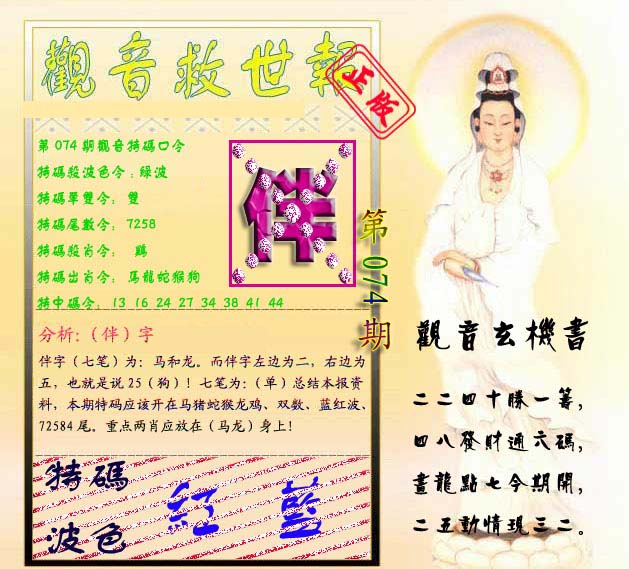 觀音救世報
正版
第074期觀音特碼口令
特碼殺波色令：綠波
特碼單雙令： 雙
特碼尾數令： 7258
特碼殺肖令： 鷄
特碼出肖令： 馬龍蛇猴狗
特中碼令： 13 16 24 27 34 38 41 44
伴
第074期
分析：（伴）字
伴字（七笔）为：马和龙。而伴字左边为二，右边为
五，也就是说25（狗）！七笔为：（单）总结本报资
料，本期特码应该开在马猪蛇猴龙鸡、双数、蓝红波、
72584尾。重点两肖应放在（马龙）身上！
特碼
波色
紅 藍
觀音玄機書
二二四十勝一籌，
四八發財通六碼，
畫龍點七今期開，
二五動情現三二。